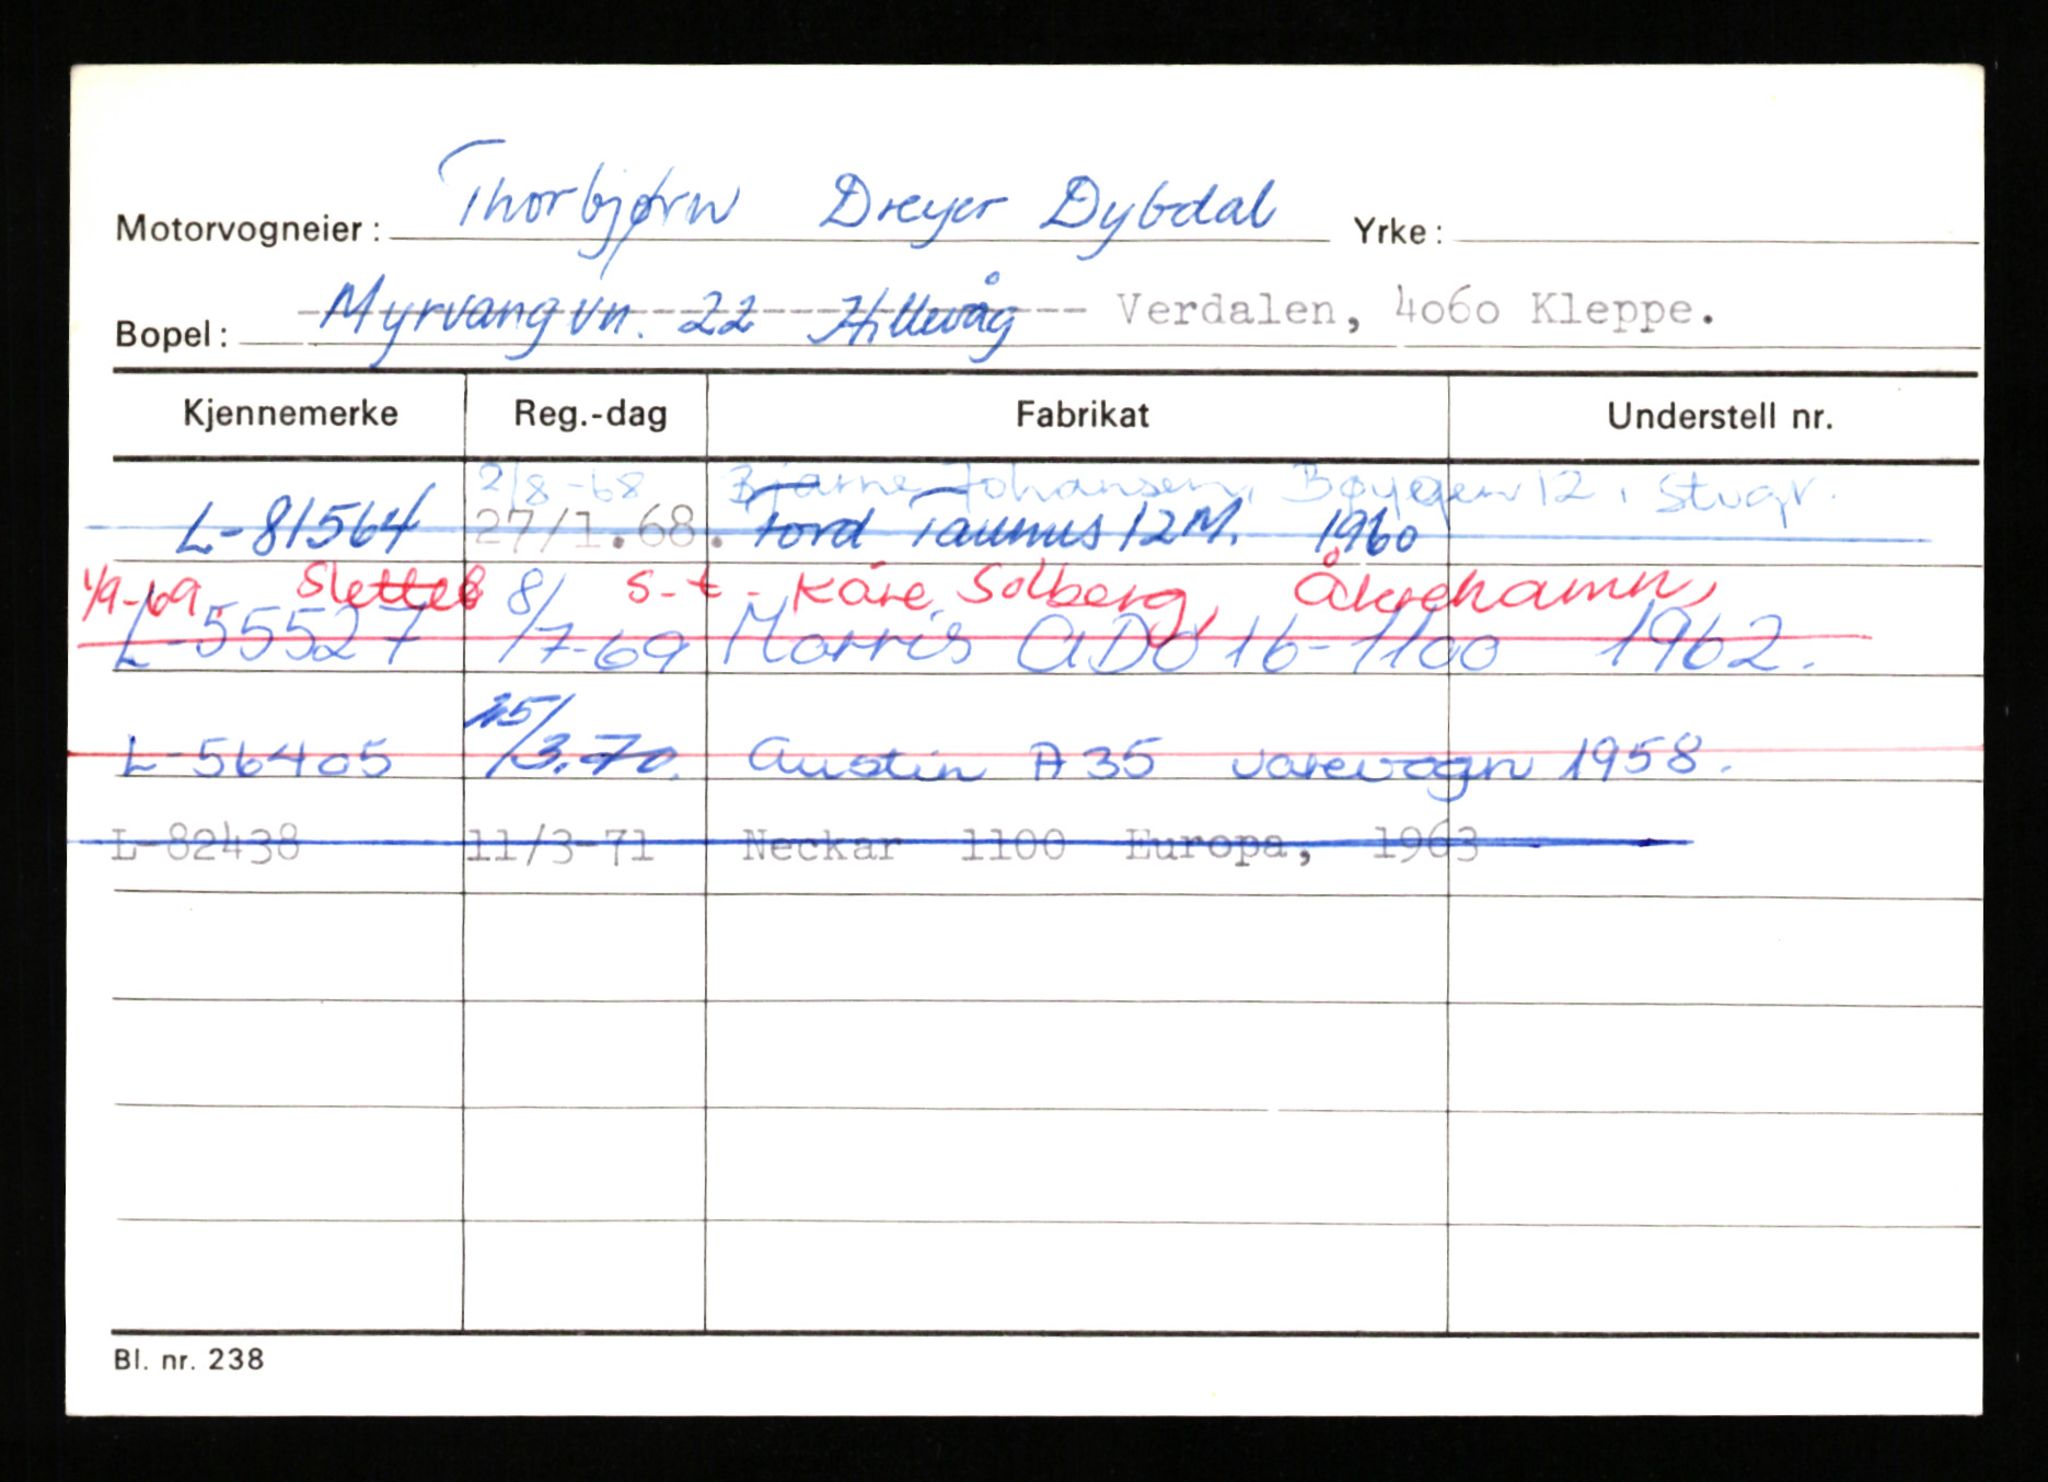 Motorvogneier: Thorbjørn Dreyer Dybdal Yrke:
Bopel: Myrvangvn. 22 Hillevåg Verdalen, 4060 Kleppe.
Kjennemerke Reg.-dag Fabrikat Understell nr.
2/8-68 Bjarne Johansen, Bøygen 12, Stvgr.
L-81564 27/1.68. Ford Taunus 12M. 1960
1/9-69. Slettes s-t- Kåre Solberg, Åkrehamn,
L-55527 8/7-69 Morris ADO 16-1100 1962.
L-56405 /3.70. Austin A35 varevogn 1958.
L-82438 11/3-71 Neckar 1100 Europa, 1963
Bl. nr. 238